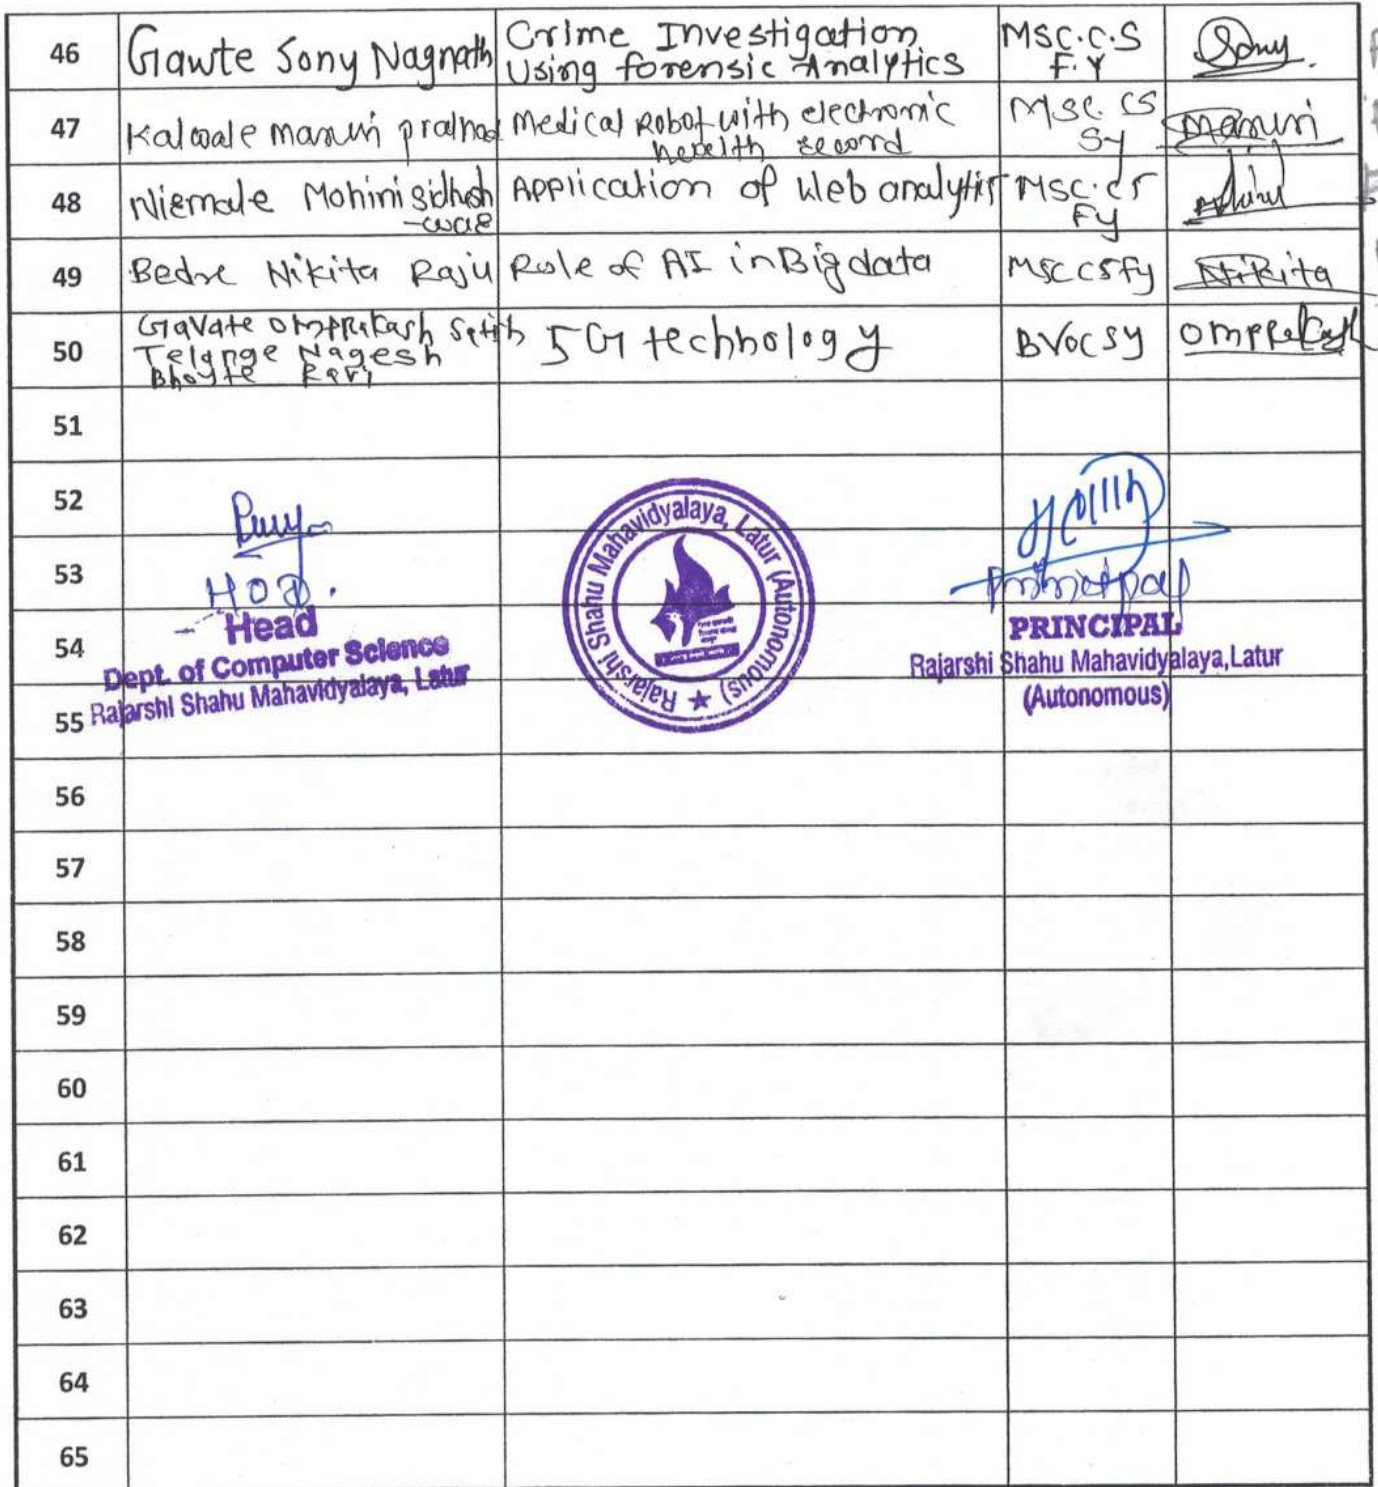 46 Gawte Sony Nagnath Crime Investigation Using forensic Analytics MSC.C.S F.Y Sony.
47 Kalwale maruti pralhad Medical Robot with electronic health record MSC. CS Sy Maruti
48 Niemale Mohini sidhesh -war Application of Web analytis MSC.CS Fy
49 Bedre Nikita Raju Role of AI in Big data MSC CS fy Nikita
50 Gavate Omprakash Satish Telange Nagesh Bhoyte Ravi 5G technology BVOC SY Omprakash
51
52
53 HOD. Principal
54 Head PRINCIPAL
Dept. of Computer Science Rajarshi Shahu Mahavidyalaya, Latur
55 Rajarshi Shahu Mahavidyalaya, Latur (Autonomous)
Rajarshi Shahu Mahavidyalaya, Latur (Autonomous) ★
56
57
58
59
60
61
62
63
64
65